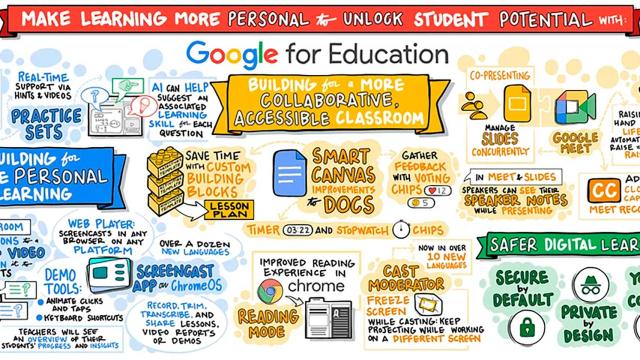 MAKE LEARNING MORE PERSONAL to UNLOCK STUDENT POTENTIAL WITH:
Google for Education
REAL-TIME
SUPPORT VIA
HINTS & VIDEOS
PRACTICE
SETS
AI CAN HELP
SUGGEST AN
ASSOCIATED
LEARNING
SKILL for EACH
QUESTION
BUILDING for a MORE
COLLABORATIVE,
ACCESSIBLE CLASSROOM
CO-PRESENTING
MANAGE
SLIDES
CONCURRENTLY
GOOGLE
MEET
RAISING
HAND
AUTOMAT
RAISE
BUILDING for
PERSONAL
LEARNING
SAVE TIME
WITH CUSTOM
BUILDING
BLOCKS
LESSON
PLAN
SMART
CANVAS
IMPROVEMENTS
to DOCS
GATHER
FEEDBACK
WITH VOTING
CHIPS
12
5
IN MEET & SLIDES
SPEAKERS CAN SEE THEIR
SPEAKER NOTES
WHILE PRESENTING
CC
CLO
CAP
MEET RECO
TIMER 03:22 AND STOPWATCH CHIPS
ROOM
TO
VIDEO
WEB PLAYER:
SCREENCASTS IN ANY
BROWSER ON ANY
PLATFORM
OVER A DOZEN
NEW LANGUAGES
DEMO
TOOLS:
ANIMATE CLICKS
AND TAPS
KEYBOARD SHORTCUTS
SCREENCAST
APP on ChromeOS
RECORD, TRIM,
TRANSCRIBE, AND
SHARE LESSONS,
VIDEO REPORTS
OR DEMOS
TEACHERS WILL SEE
AN OVERVIEW OF THEIR
STUDENTS' PROGRESS AND INSIGHTS
IMPROVED READING
EXPERIENCE IN
chrome
READING
MODE
NOW IN OVER
10 NEW
LANGUAGES
CAST
MODERATOR
FREEZE
SCREEN
WHILE CASTING - KEEP
PROJECTING WHILE WORKING
ON A DIFFERENT SCREEN
SAFER DIGITAL LEAR
SECURE
by
DEFAULT
PRIVATE
by
DESIGN